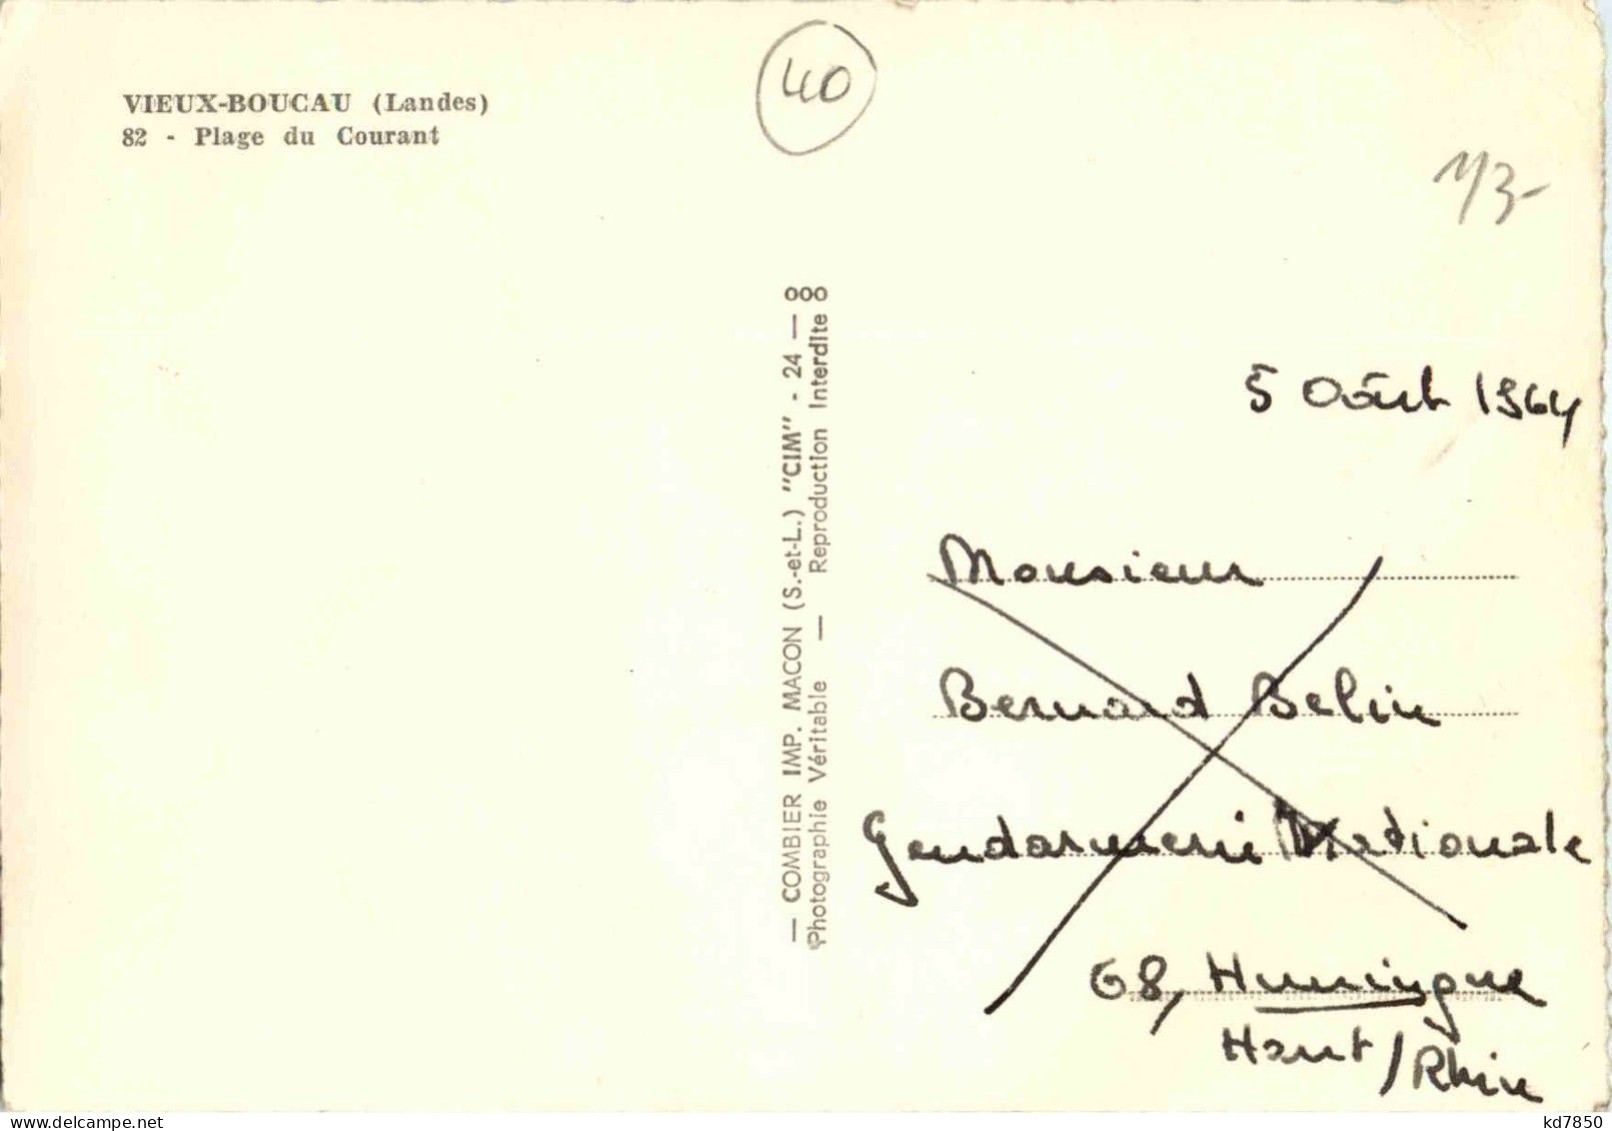 VIEUX-BOUCAU (Landes)
82 - Plage du Courant
40
— COMBIER IMP. MACON (S.-et-L.) "CIM" - 24 —
Photographie Véritable — Reproduction Interdite
5 Août 1964
Monsieur
Bernard Belin
Gendarmerie Nationale
68, Huningue
Haut/Rhin
kd7850